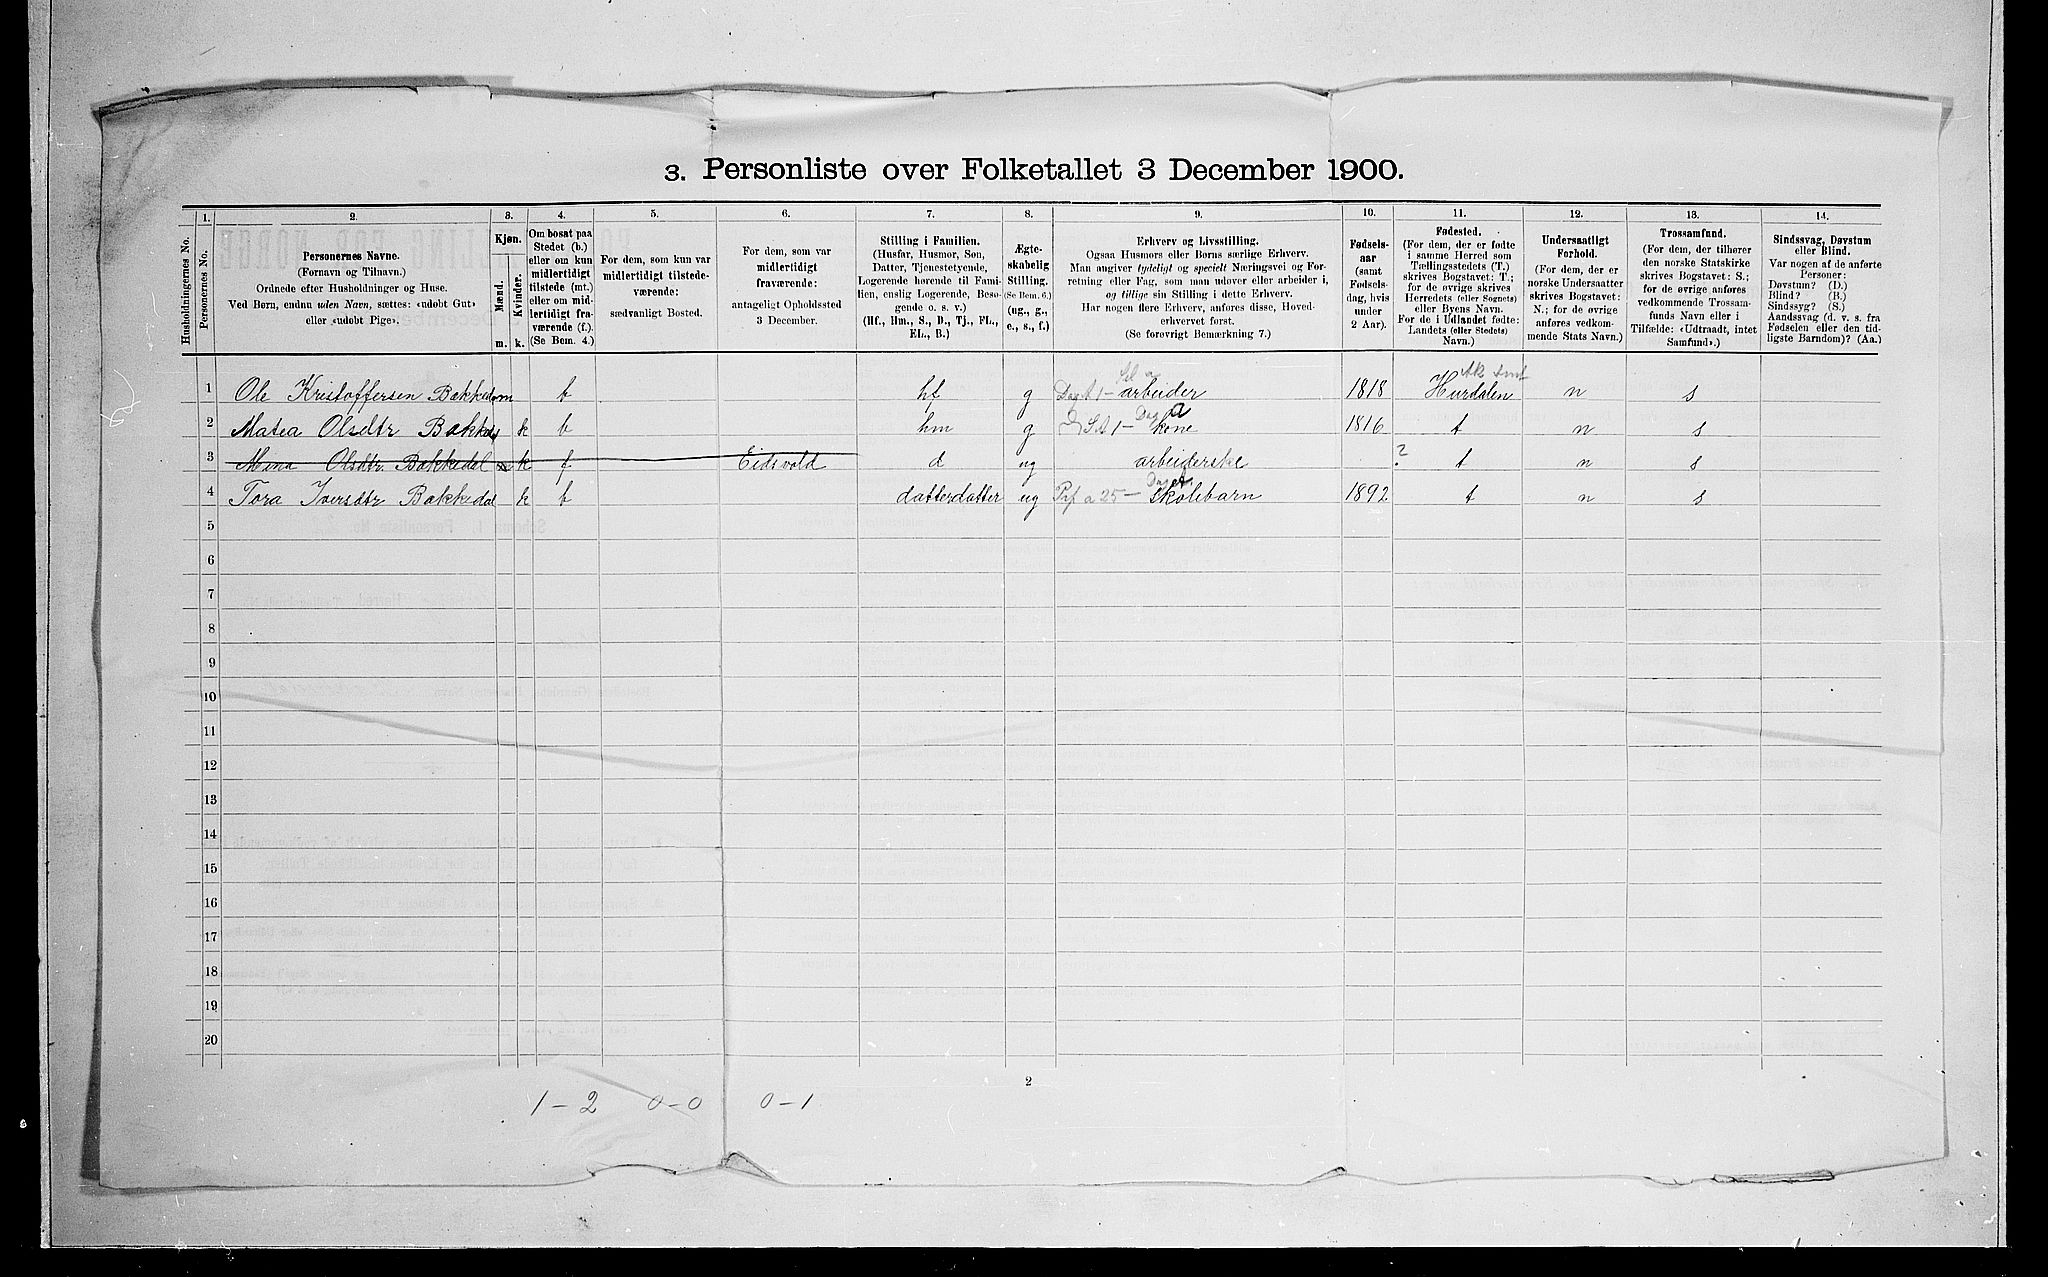 3. Personliste over Folketallet 3 December 1900.
Husholdningernes No.
1.
Personernes No.
2.
Personernes Navne.
(Fornavn og Tilnavn.)
Ordnede efter Husholdninger og Huse.
Ved Børn, endnu uden Navn, sættes: «udøbt Gut»
eller «udøbt Pige».
3.
Kjøn.
Mænd.
Kvinder.
m.
k.
4.
Om bosat paa
Stedet (b.)
eller om kun
midlertidigt
tilstede (mt.)
eller om mid-
lertidigt fra-
værende (f.)
(Se Bem. 4.)
5.
For dem, som kun var
midlertidigt tilstede-
værende:
sædvanligt Bosted.
6.
For dem, som var
midlertidigt
fraværende:
antageligt Opholdssted
3 December.
7.
Stilling i Familien.
(Husfar, Husmor, Søn,
Datter, Tjenestetyende,
Logerende hørende til Fami-
lien, enslig Logerende, Besø-
gende o. s. v.)
(Hf., Hm., S., D., Tj., FL.,
EL., B.)
8.
Ægte-
skabelig
Stilling.
(Se Bem. 6.)
(ug., g.,
e., s., f.)
9.
Erhverv og Livsstilling.
Ogsaa Husmors eller Børns særlige Erhverv.
Man angiver tydeligt og specielt Næringsvei og For-
retning eller Fag, som man udøver eller arbeider i,
og tillige sin Stilling i dette Erhverv.
Har nogen flere Erhverv, anføres disse, Hoved-
erhvervet først.
(Se forøvrigt Bemærkning 7.)
10.
Fødsels-
aar
(samt
Fødsels-
dag, hvis
under
2 Aar).
11.
Fødested.
(For dem, der er fødte
i samme Herred som
Tællingsstedets (T.)
skrives Bogstavet: T.;
for de øvrige skrives
Herredets (eller Sognets)
eller Byens Navn.
For de i Udlandet fødte:
Landets (eller Stedets)
Navn.)
12.
Undersaatligt
Forhold.
(For dem, der er
norske Undersaatter
skrives Bogstavet:
N.; for de øvrige
anføres vedkom-
mende Stats Navn.)
13.
Trossamfund.
(For dem, der tilhører
den norske Statskirke
skrives Bogstavet: S.;
for de øvrige anføres
vedkommende Trossam-
funds Navn eller i
Tilfælde: «Udtraadt, intet
Samfund».)
14.
Sindssvag, Døvstum
eller Blind.
Var nogen af de anførte
Personer:
Døvstum? (D.)
Blind? (B.)
Sindssyg? (S.)
Aandssvag (d. v. s. fra
Fødselen eller den tid-
ligste Barndom)? (Aa.)
1 Ole Kristoffersen Bakkedal m b hf g arbeider 1818 Hurdalen n s
2 Matea Olsdtr Bakkedal k b hm g kone 1816 t n s
3 Mina Olsdtr. Bakkedal k f Eidsvold d ug arbeiderske ? t n s
4 Tora Iversdtr Bakkedal k b datterdatter ug skolebarn 1892 t n s
5
6
7
8
9
10
11
12
13
14
15
16
17
18
19
20
2
1 – 2 0 – 0 0 – 1